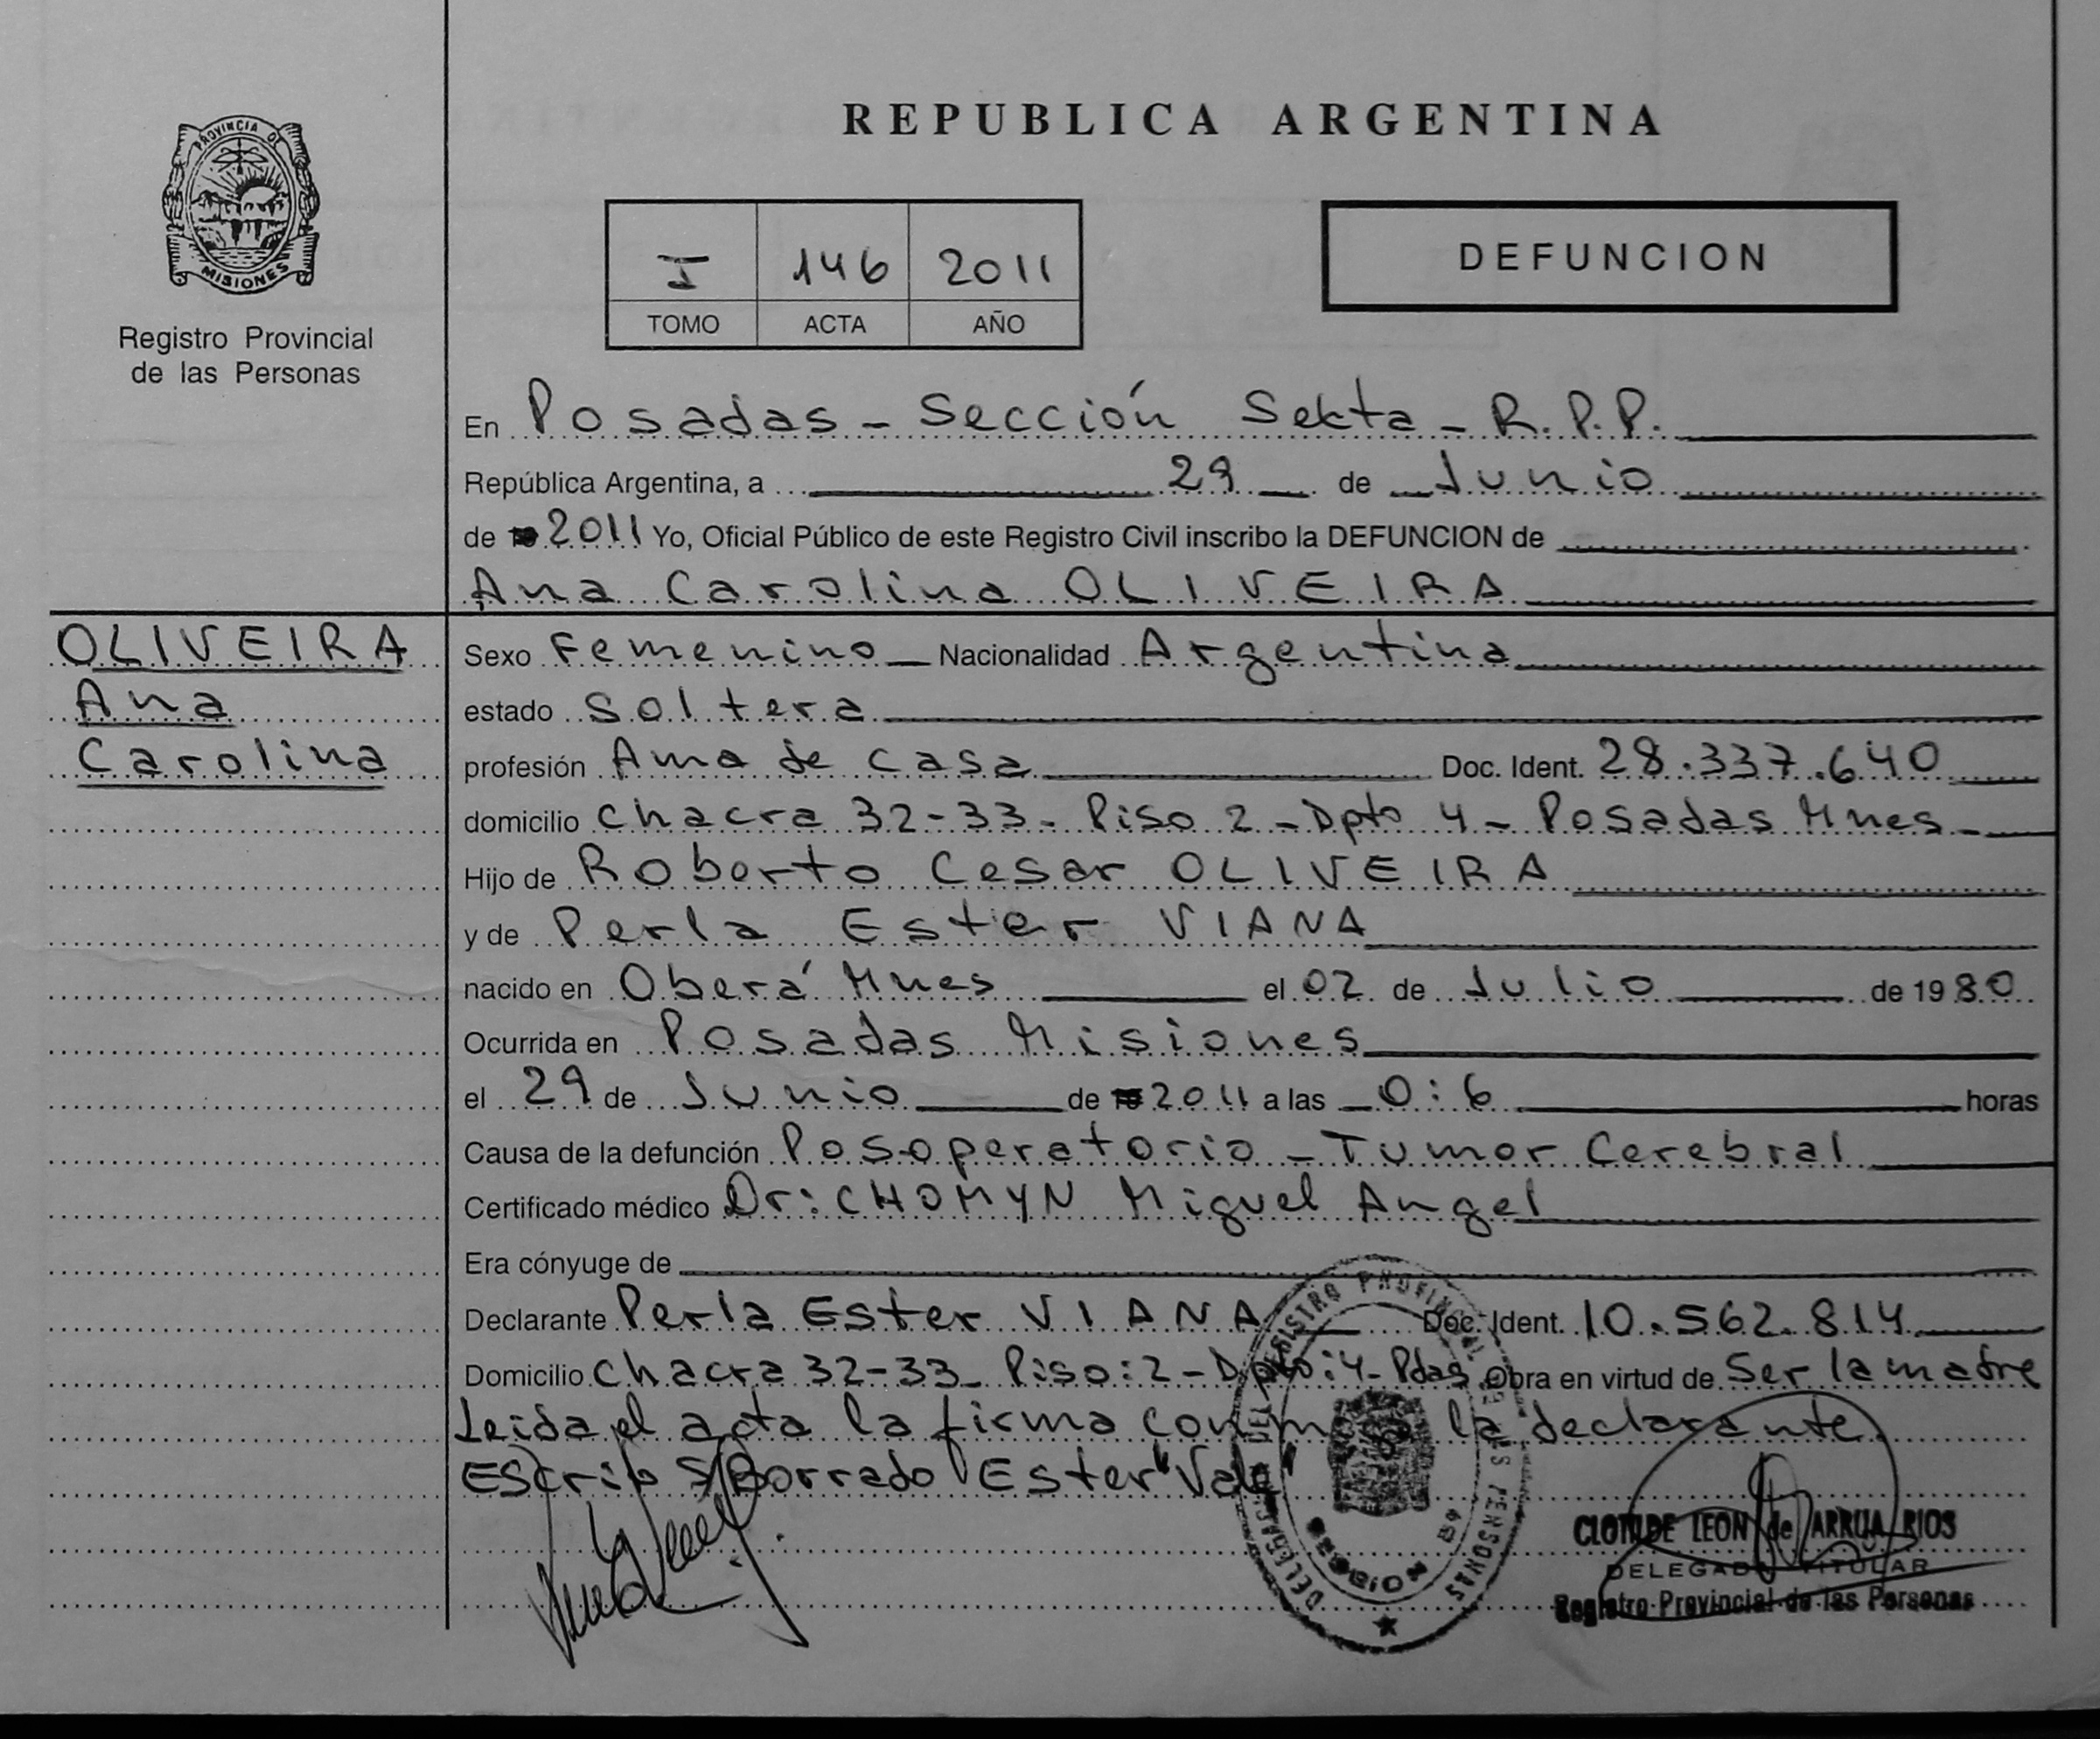 REPUBLICA ARGENTINA
PROVINCIA DE
MISIONES
Registro Provincial
de las Personas
I 146 2011
TOMO ACTA AÑO
DEFUNCION
En Posadas - Sección Sekta - R.P.P.
República Argentina, a 29 de Junio
de 2011 Yo, Oficial Público de este Registro Civil inscribo la DEFUNCION de
Ana Carolina OLIVEIRA
OLIVEIRA
Ana
Carolina
Sexo Femenino Nacionalidad Argentina
estado Soltera
profesión Ama de casa Doc. Ident. 28.337.640
domicilio Chacra 32-33- Piso 2 - Dpto 4 - Posadas Mnes-
Hijo de Roberto Cesar OLIVEIRA
y de Perla Ester VIANA
nacido en Oberá Mnes el 02 de Julio de 1980
Ocurrida en Posadas Misiones
el 29 de Junio de 2011 a las 0:6 horas
Causa de la defunción Posoperatorio - Tumor Cerebral
Certificado médico Dr: CHOMYN Miguel Angel
Era cónyuge de
Declarante Perla Ester VIANA Doc. Ident. 10.562.814
Domicilio Chacra 32-33- Piso:2 - Dpto:4- Pdas Obra en virtud de Ser la madre
Leida el acta la firma conmigo la declarante.
Escrito S/Borrado Ester "Vale"
DELEGACION DEL REGISTRO PROVINCIAL DE LAS PERSONAS
CLOTILDE LEON de ARRUA RIOS
DELEGADO TITULAR
Registro Provincial de las Personas